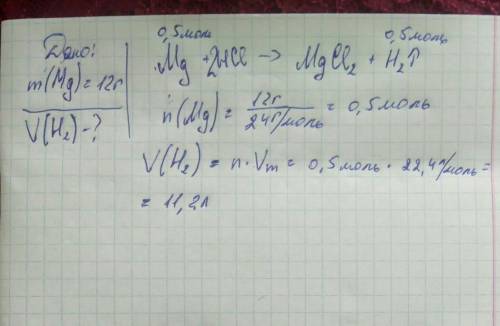 Дано:
m(Mg) = 12г
V(H₂) - ?
0,5моль 0,5моль
Mg + 2HCl -> MgCl₂ + H₂↑
n(Mg) = 12г / 24г/моль = 0,5моль
V(H₂) = n · Vm = 0,5моль · 22,4л/моль =
= 11,2л